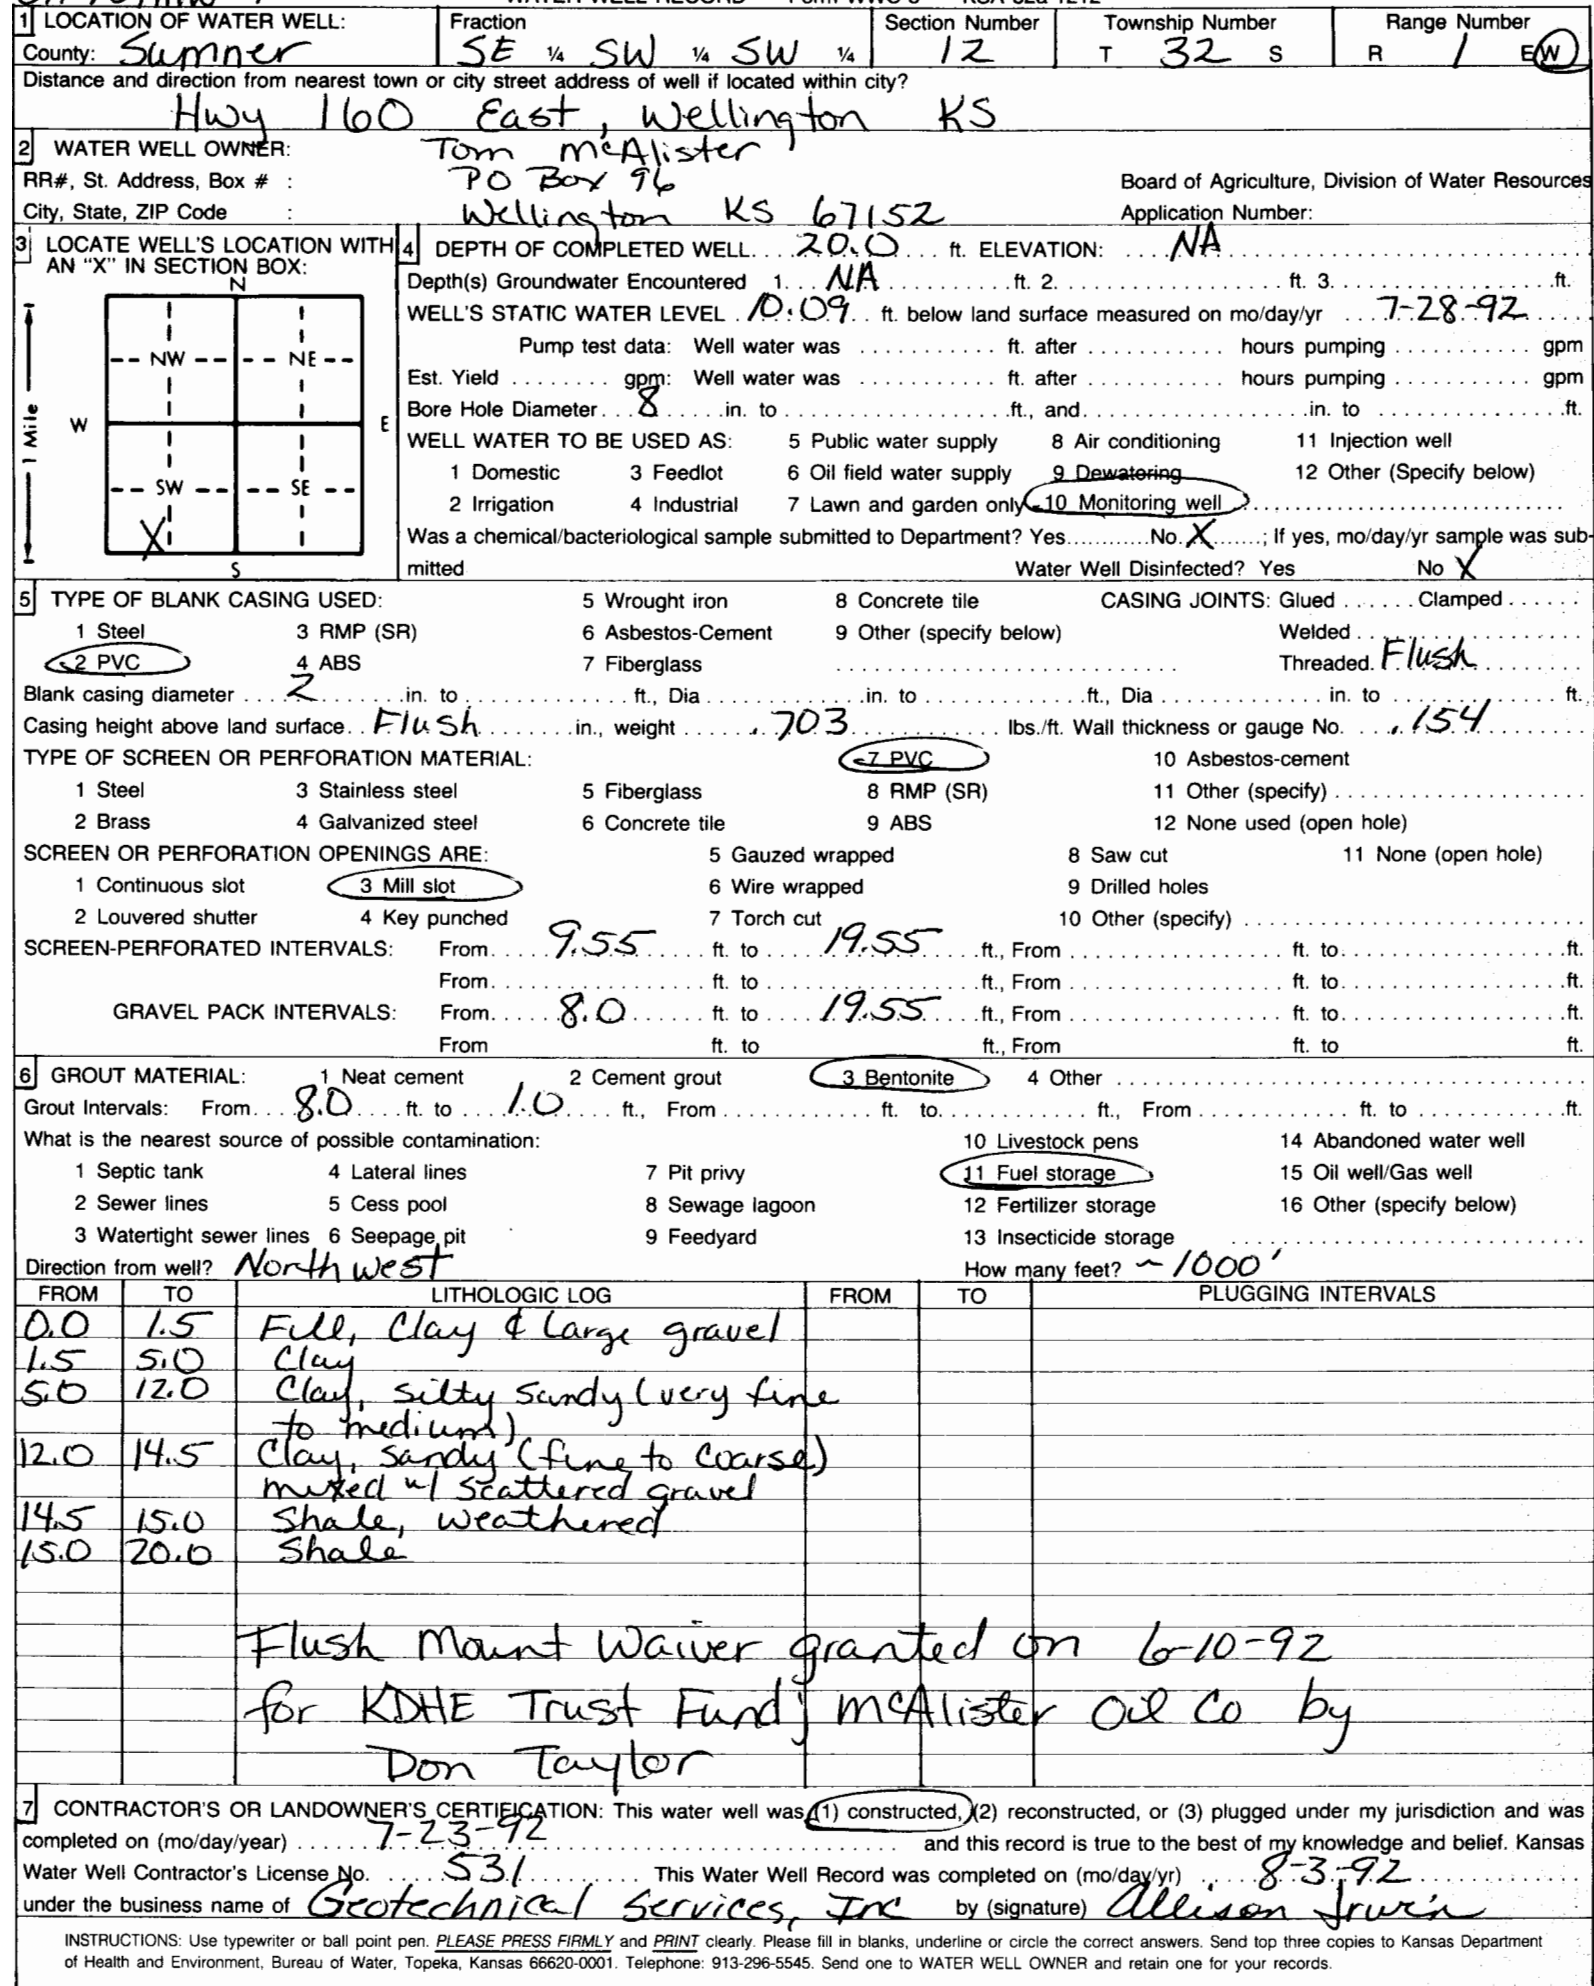 WATER WELL RECORD Form WWC-5 KSA 82a-1212
1 LOCATION OF WATER WELL: Fraction Section Number Township Number Range Number
County: Sumner SE ¼ SW ¼ SW ¼ 12 T 32 S R 1 E(W)
Distance and direction from nearest town or city street address of well if located within city?
Hwy 160 East, Wellington KS
2 WATER WELL OWNER: Tom McAlister
RR#, St. Address, Box # : PO Box 96 Board of Agriculture, Division of Water Resources
City, State, ZIP Code : Wellington KS 67152 Application Number:
3 LOCATE WELL'S LOCATION WITH AN "X" IN SECTION BOX:
N
NW NE
W E
SW SE
X
S
1 Mile
4 DEPTH OF COMPLETED WELL 20.0 ft. ELEVATION: NA
Depth(s) Groundwater Encountered 1. NA ft. 2. ft. 3. ft.
WELL'S STATIC WATER LEVEL 10.09 ft. below land surface measured on mo/day/yr 7-28-92
Pump test data: Well water was ft. after hours pumping gpm
Est. Yield gpm: Well water was ft. after hours pumping gpm
Bore Hole Diameter 8 in. to ft., and in. to ft.
WELL WATER TO BE USED AS: 5 Public water supply 8 Air conditioning 11 Injection well
1 Domestic 3 Feedlot 6 Oil field water supply 9 Dewatering 12 Other (Specify below)
2 Irrigation 4 Industrial 7 Lawn and garden only 10 Monitoring well
Was a chemical/bacteriological sample submitted to Department? Yes No X ; If yes, mo/day/yr sample was sub-
mitted Water Well Disinfected? Yes No X
5 TYPE OF BLANK CASING USED: 5 Wrought iron 8 Concrete tile CASING JOINTS: Glued Clamped
1 Steel 3 RMP (SR) 6 Asbestos-Cement 9 Other (specify below) Welded
2 PVC 4 ABS 7 Fiberglass Threaded. Flush
Blank casing diameter 2 in. to ft., Dia in. to ft., Dia in. to ft.
Casing height above land surface Flush in., weight .703 lbs./ft. Wall thickness or gauge No. .154
TYPE OF SCREEN OR PERFORATION MATERIAL: 7 PVC 10 Asbestos-cement
1 Steel 3 Stainless steel 5 Fiberglass 8 RMP (SR) 11 Other (specify)
2 Brass 4 Galvanized steel 6 Concrete tile 9 ABS 12 None used (open hole)
SCREEN OR PERFORATION OPENINGS ARE: 5 Gauzed wrapped 8 Saw cut 11 None (open hole)
1 Continuous slot 3 Mill slot 6 Wire wrapped 9 Drilled holes
2 Louvered shutter 4 Key punched 7 Torch cut 10 Other (specify)
SCREEN-PERFORATED INTERVALS: From 9.55 ft. to 19.55 ft., From ft. to ft.
From ft. to ft., From ft. to ft.
GRAVEL PACK INTERVALS: From 8.0 ft. to 19.55 ft., From ft. to ft.
From ft. to ft., From ft. to ft.
6 GROUT MATERIAL: 1 Neat cement 2 Cement grout 3 Bentonite 4 Other
Grout Intervals: From 8.0 ft. to 1.0 ft., From ft. to ft., From ft. to ft.
What is the nearest source of possible contamination: 10 Livestock pens 14 Abandoned water well
1 Septic tank 4 Lateral lines 7 Pit privy 11 Fuel storage 15 Oil well/Gas well
2 Sewer lines 5 Cess pool 8 Sewage lagoon 12 Fertilizer storage 16 Other (specify below)
3 Watertight sewer lines 6 Seepage pit 9 Feedyard 13 Insecticide storage
Direction from well? Northwest How many feet? ~1000'
FROM TO LITHOLOGIC LOG FROM TO PLUGGING INTERVALS
0.0 1.5 Fill, Clay & Large gravel
1.5 5.0 Clay
5.0 12.0 Clay, silty sandy (very fine
to medium)
12.0 14.5 Clay, sandy (fine to coarse)
mixed w/ scattered gravel
14.5 15.0 Shale, weathered
15.0 20.0 Shale
Flush Mount Waiver granted on 6-10-92
for KDHE Trust Fund; McAlister Oil Co by
Don Taylor
7 CONTRACTOR'S OR LANDOWNER'S CERTIFICATION: This water well was (1) constructed, (2) reconstructed, or (3) plugged under my jurisdiction and was
completed on (mo/day/year) 7-23-92 and this record is true to the best of my knowledge and belief. Kansas
Water Well Contractor's License No. 531 This Water Well Record was completed on (mo/day/yr) 8-3-92
under the business name of Geotechnical Services, Inc by (signature) Allison Irwin
INSTRUCTIONS: Use typewriter or ball point pen. PLEASE PRESS FIRMLY and PRINT clearly. Please fill in blanks, underline or circle the correct answers. Send top three copies to Kansas Department
of Health and Environment, Bureau of Water, Topeka, Kansas 66620-0001. Telephone: 913-296-5545. Send one to WATER WELL OWNER and retain one for your records.